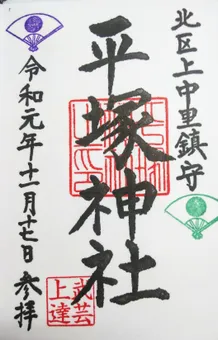 北区上中里鎮守
平塚神社
令和元年十一月十七日 参拝
武芸
上達